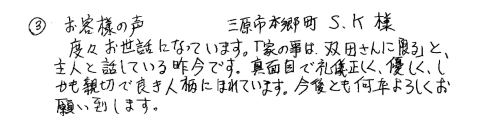 ③ お客様の声　三原市本郷町 S.K 様
度々お世話になっています。「家の事は双田さんに限る」と、
主人と話している昨今です。真面目で礼儀正しく、優しく、し
かも親切で良き人柄にほれています。今後とも何卒よろしくお
願い致します。